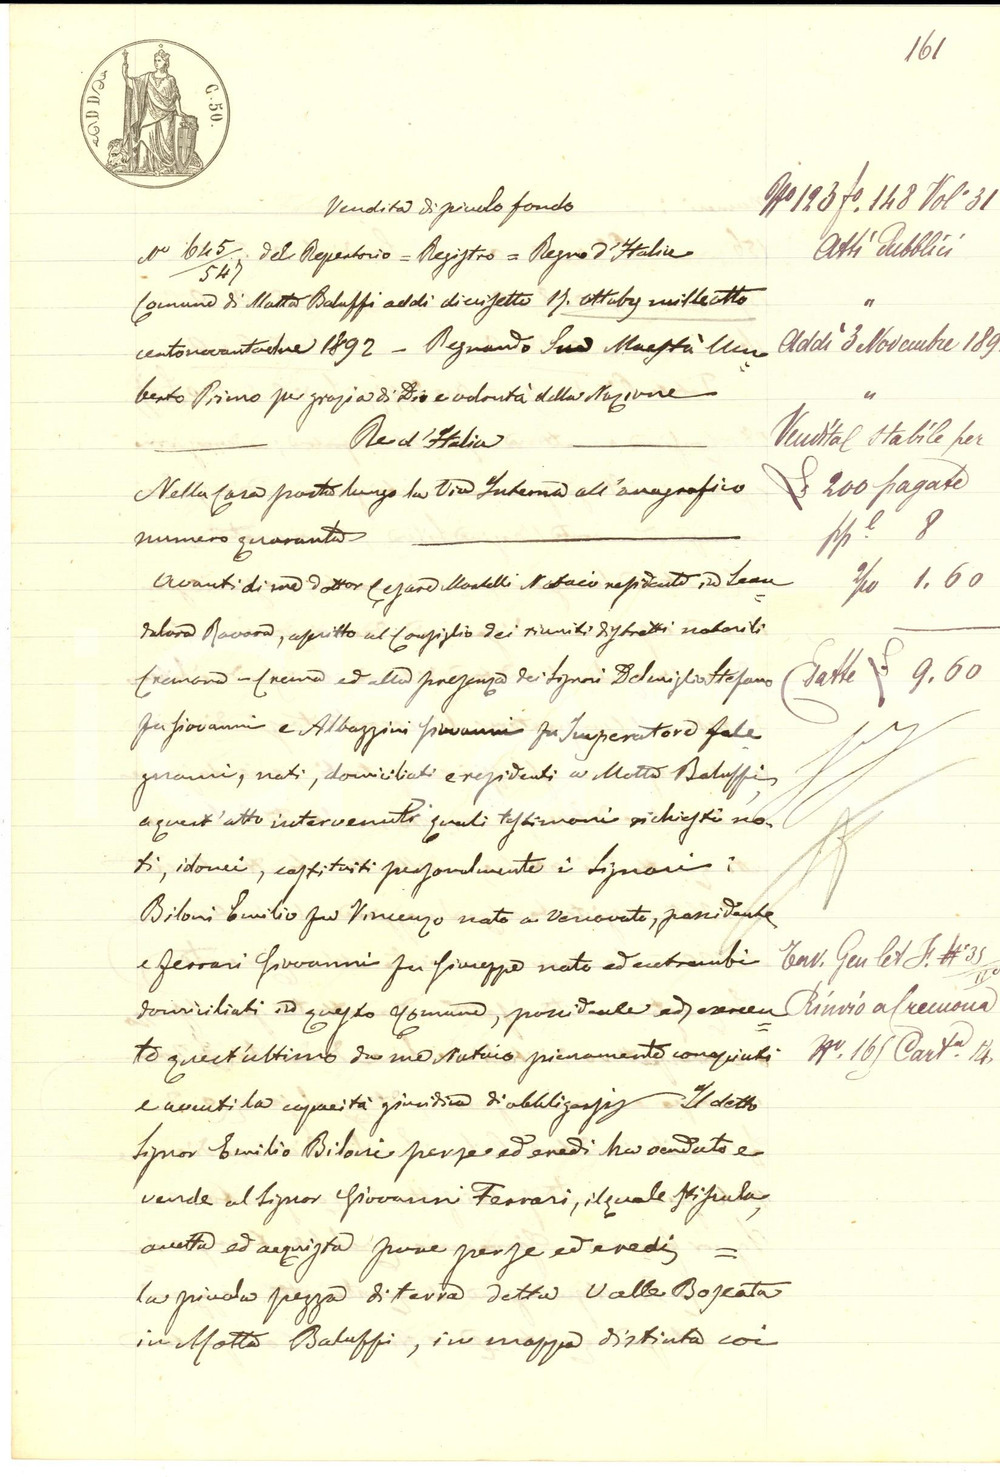 161
C. 50.
Vendita di piccolo fondo
N.o 645/547 del Repertorio = Registro = Regno d'Italia
Comune di Motta Baluffi addi diecisette 17. ottobre mille otto
cento novantadue 1892 - Regnando Sua Maestà Um=
berto Primo per grazia di Dio e volontà della Nazione
Re d'Italia
Nella Casa posta lungo la Via Interna all'anagrafico
numero quaranta
Avanti di me Dottor Cesare Martelli Notaio residente in Scan=
dolara Ravara, ascritto al Consiglio dei riuniti distretti notarili
Cremona - Crema ed alla presenza dei Signori Delmiglio Stefano
fu Giovanni e Albazzini Giovanni fu Imperatore fale
gnami, nati, domiciliati e residenti a Motta Baluffi,
a quest'atto intervenuti quali testimoni richiesti no-
ti, idonei, costituiti personalmente i Signori:
Biloni Emilio fu Vincenzo nato a Vescovato, possidente
e Ferrari Giovanni fu Giuseppe nato ed entrambi
domiciliati in questo Comune, possidente ed esercen=
te quest'ultimo da me Notaio pienamente conosciuti
e aventi la capacità giuridica di obbligarsi Il detto
Signor Emilio Biloni per se ed eredi ha venduto e
vende al Signor Giovanni Ferrari, il quale stipula,
accetta ed acquista pure per se ed eredi =
la piccola pezza di terra detta Valle Boscata
in Motta Baluffi, in mappa distinta coi
N.o 123 f.o 148 Vol. 31
Atti Pubblici
"
Addì 3 Novembre 189
"
Vendita stabile per
£ 200 pagate
pp.l 8
1.60
Totale £ 9.60
Rinvio a Cremona
N.o 165 Cart.a 14.